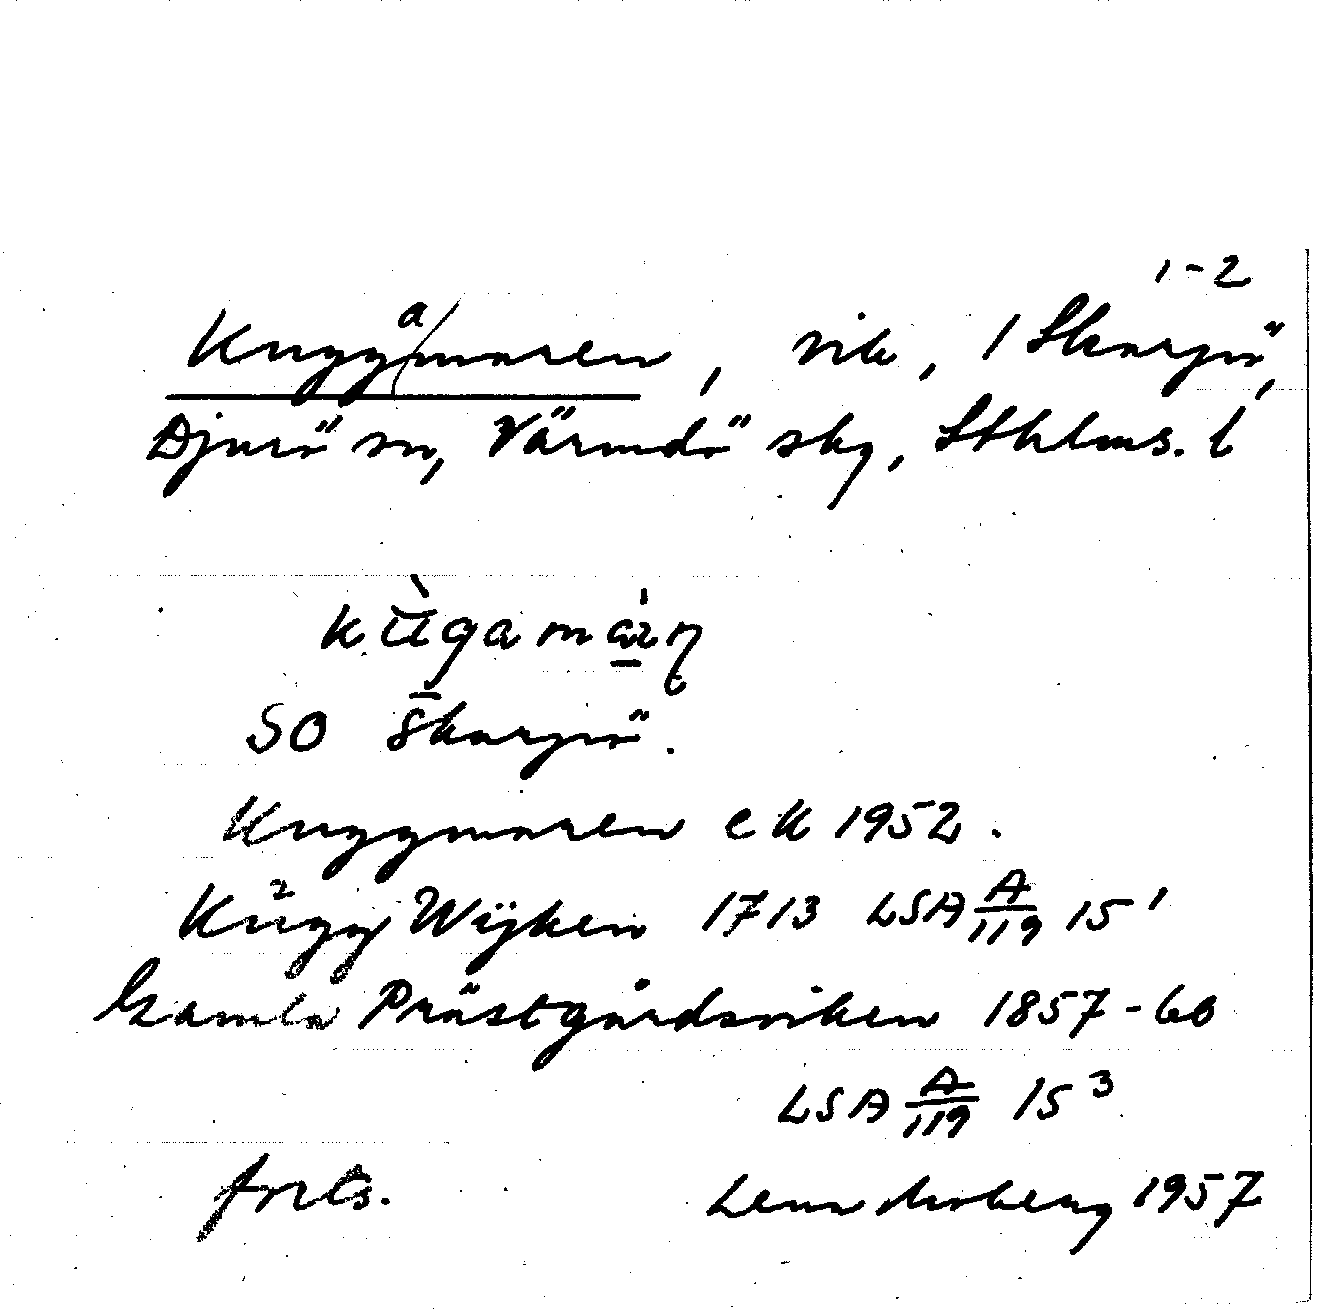 1-2
Kuggamaren, vik, 1 Skarpö,
Djurö sn, Värmdö skg, Sthlms. l
kŭ̀gamárn
SO Skarpö.
Kuggmaren ek 1952.
Kugg Wijken 1713 LSA A/119 15¹
Gamla Prästgårdsviken 1857-60
LSA A/119 15³
forts. 1957